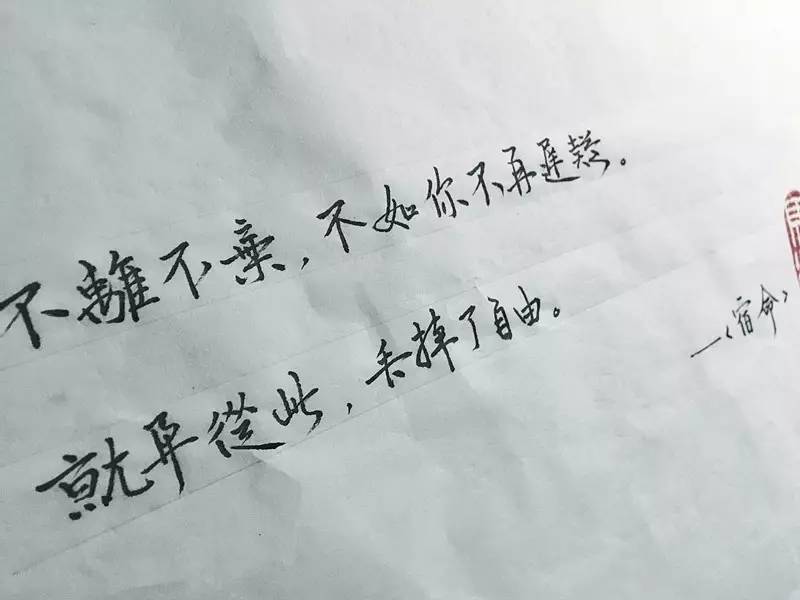 不離不棄，不如你不再遲疑。
就算從此，丢掉了自由。
—〈宿命〉